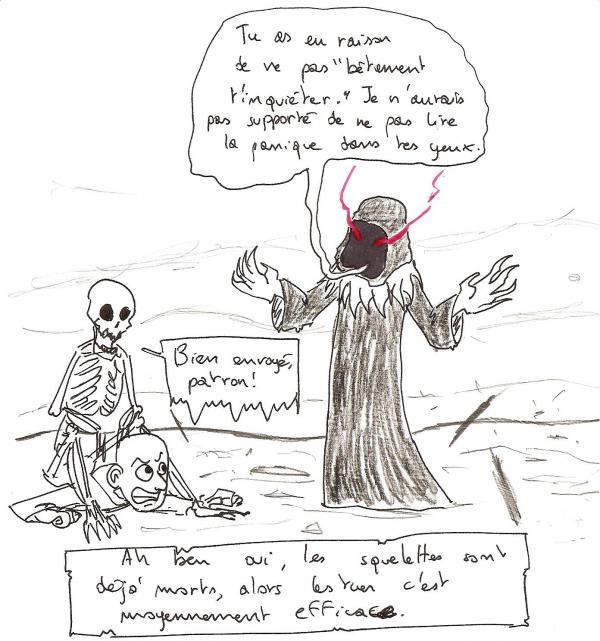 Tu as eu raison
de ne pas "bêtement
t'inquiéter." Je n'aurais
pas supporté de ne pas lire
la panique dans tes yeux.
Bien envoyé,
patron!
Ah ben oui, les squelettes sont
déjà morts, alors les tuer c'est
moyennement efficace.